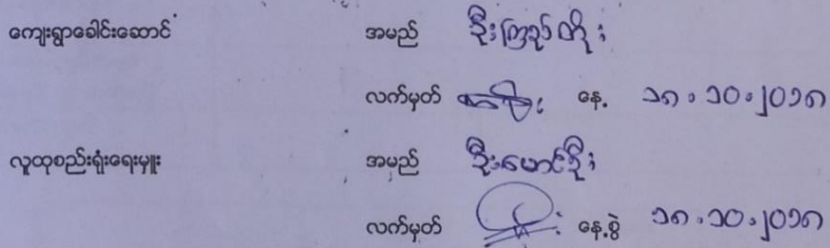 ကျေးရွာခေါင်းဆောင် အမည် ဦးကြည်တိုး
လက်မှတ် နေ့ ၁၈.၁၀.၂၀၁၈
လူထုစည်းရုံးရေးမှူး အမည် ဦးမောင်ဦး
လက်မှတ် နေ့စွဲ ၁၈.၁၀.၂၀၁၈